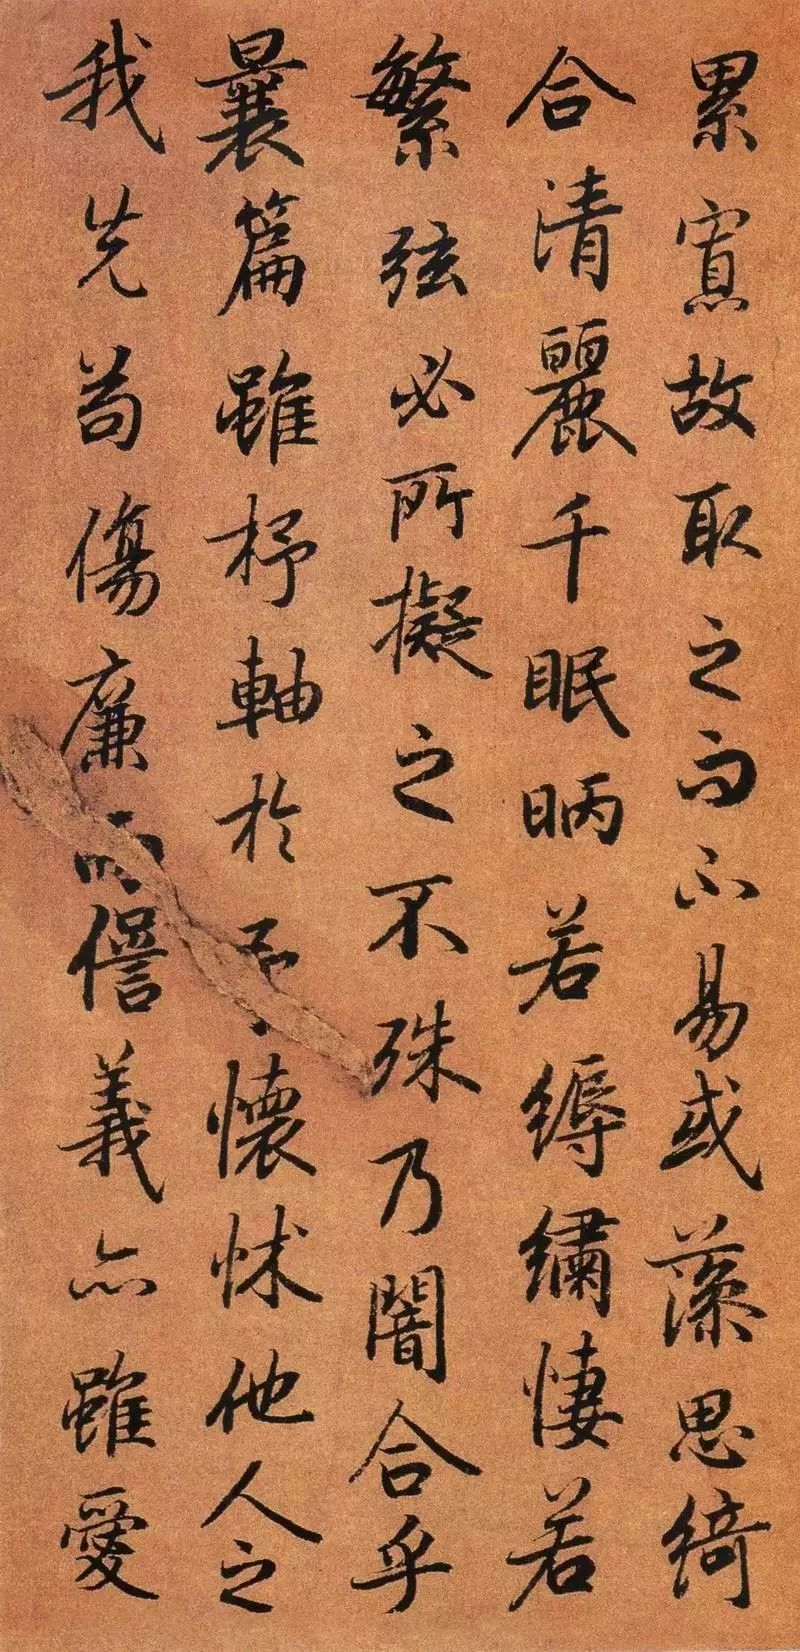 累寡故取足而不易或藻思綺
合清麗千眠昞若縟繡悽若
繁弦必所擬之不殊乃闇合乎
曩篇雖杼軸於予懷怵他人之
我先苟傷廉而諐義亦雖愛